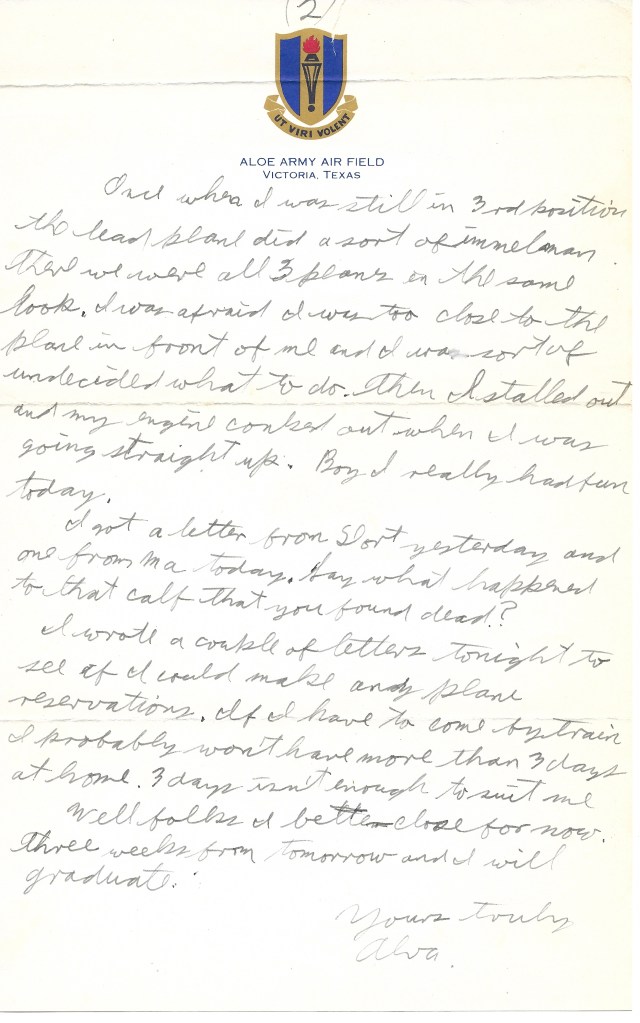 (2)
UT VIRI VOLENT
ALOE ARMY AIR FIELD
VICTORIA, TEXAS
Once when I was still in 3rd position
the lead plane did a sort of immelman
there we were all 3 planes in the same
loop. I was afraid I was too close to the
plane in front of me and I was sort of
undecided what to do. Then I stalled out
and my engine conked out when I was
going straight up. Boy I really had fun
today.
I got a letter from Dort yesterday and
one from Ma today. Say what happened
to that calf that you found dead?
I wrote a couple of letters tonight to
see if I could make any plane
reservations. If I have to come by train
I probably won't have more than 3 days
at home. 3 days isn't enough to suit me
Well folks I better close for now.
three weeks from tomorrow and I will
graduate.
Yours truly
Alva.